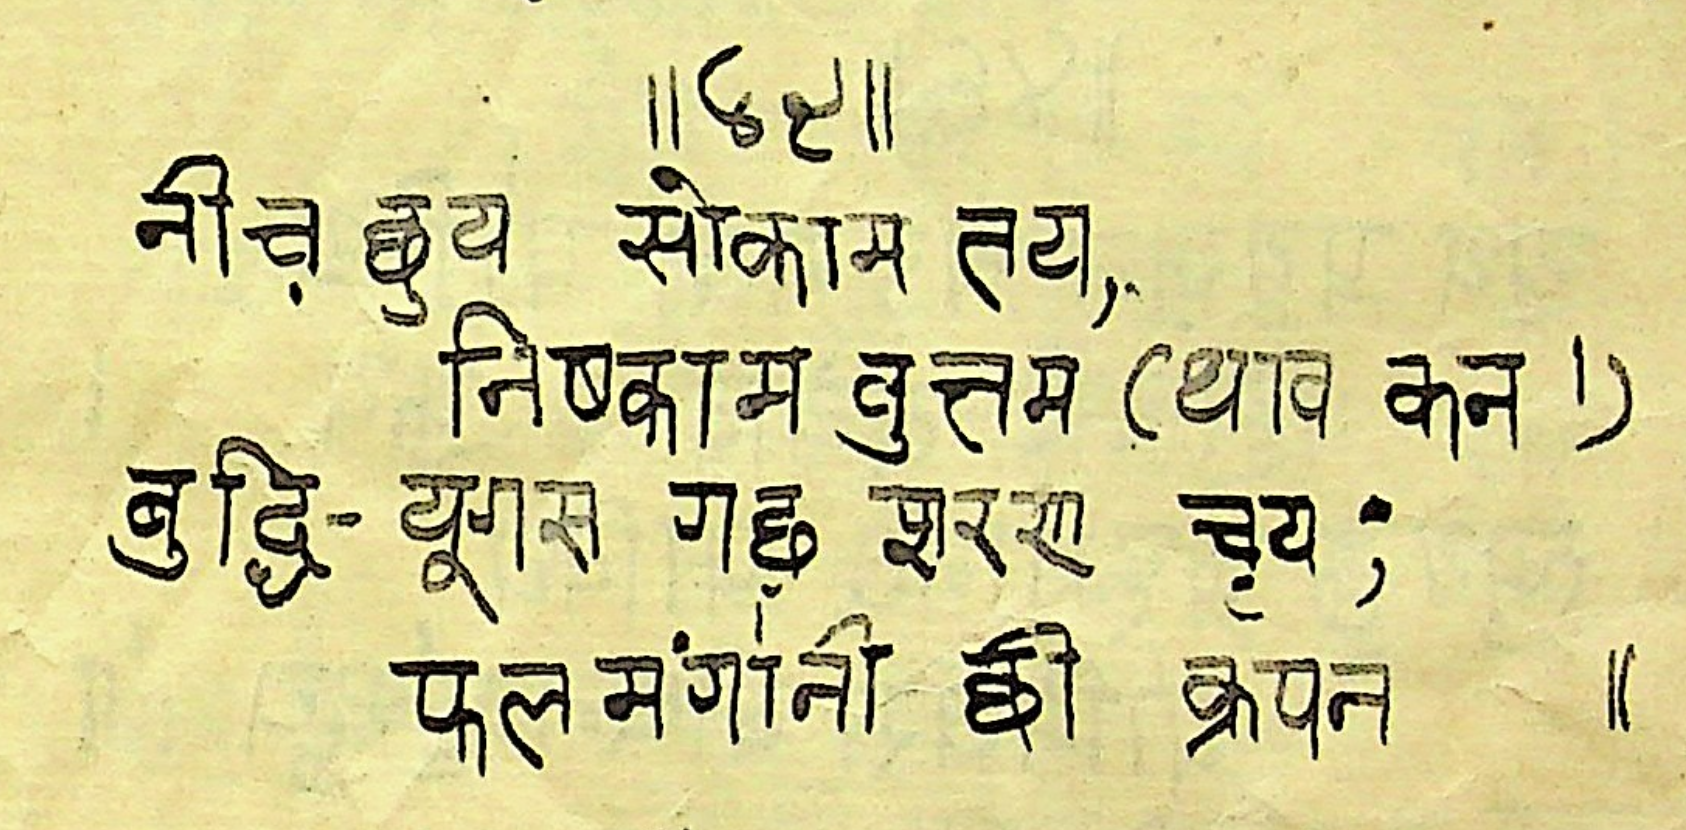 ॥४९॥
नीच़ छुय सोकाम तय,
निष्काम वुत्तम (थाव कन।)
बुद्धि-यूगस गछ़ शरण च़़्य;
फल मंगॉनी छी क्रपन ॥